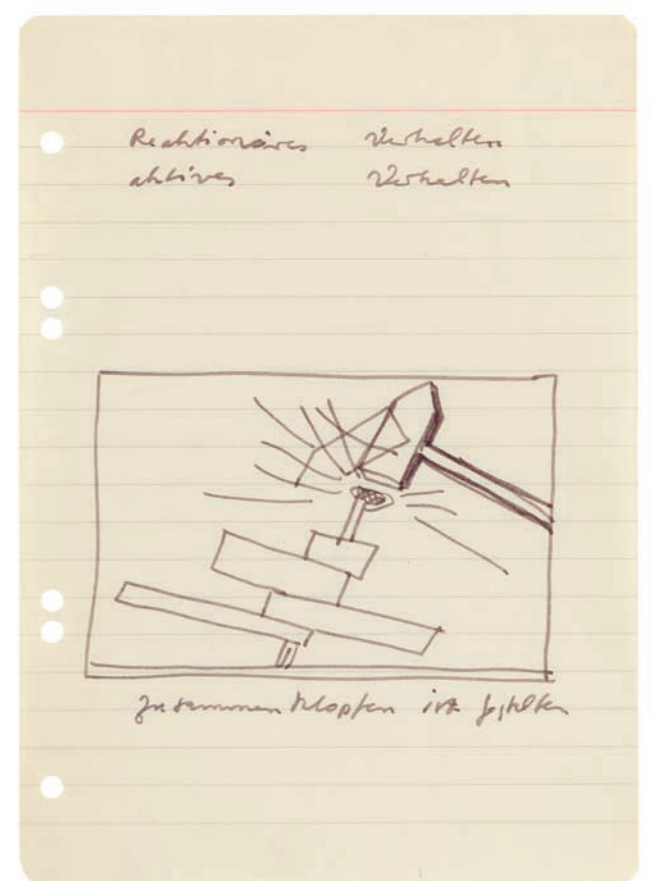 Reaktionäres Verhalten
aktives Verhalten
zusammen klopfen ist